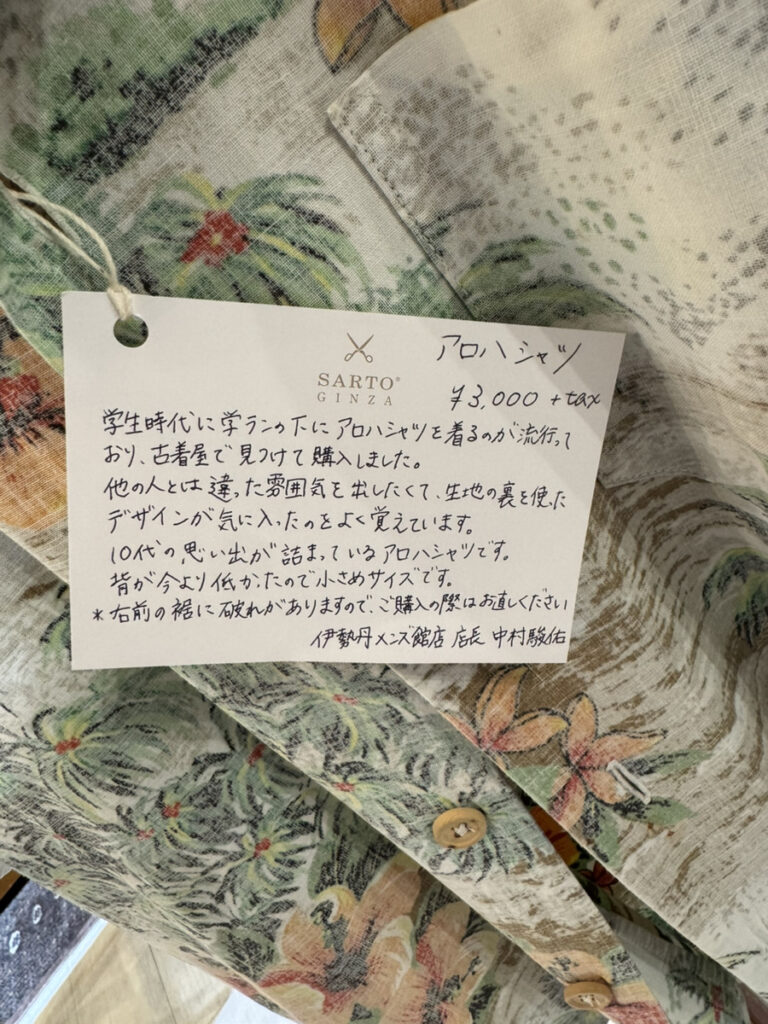 アロハシャツ
SARTO®
GINZA
¥3,000 + tax
学生時代に学ランの下にアロハシャツを着るのが流行って
おり、古着屋で見つけて購入しました。
他の人とは違った雰囲気を出したくて、生地の裏を使った
デザインが気に入ったのをよく覚えています。
10代の思い出が詰まっているアロハシャツです。
背が今より低かったので小さめサイズです。
*右前の裾に破れがありますので、ご購入の際はお直しください
伊勢丹メンズ館店 店長 中村駿佑